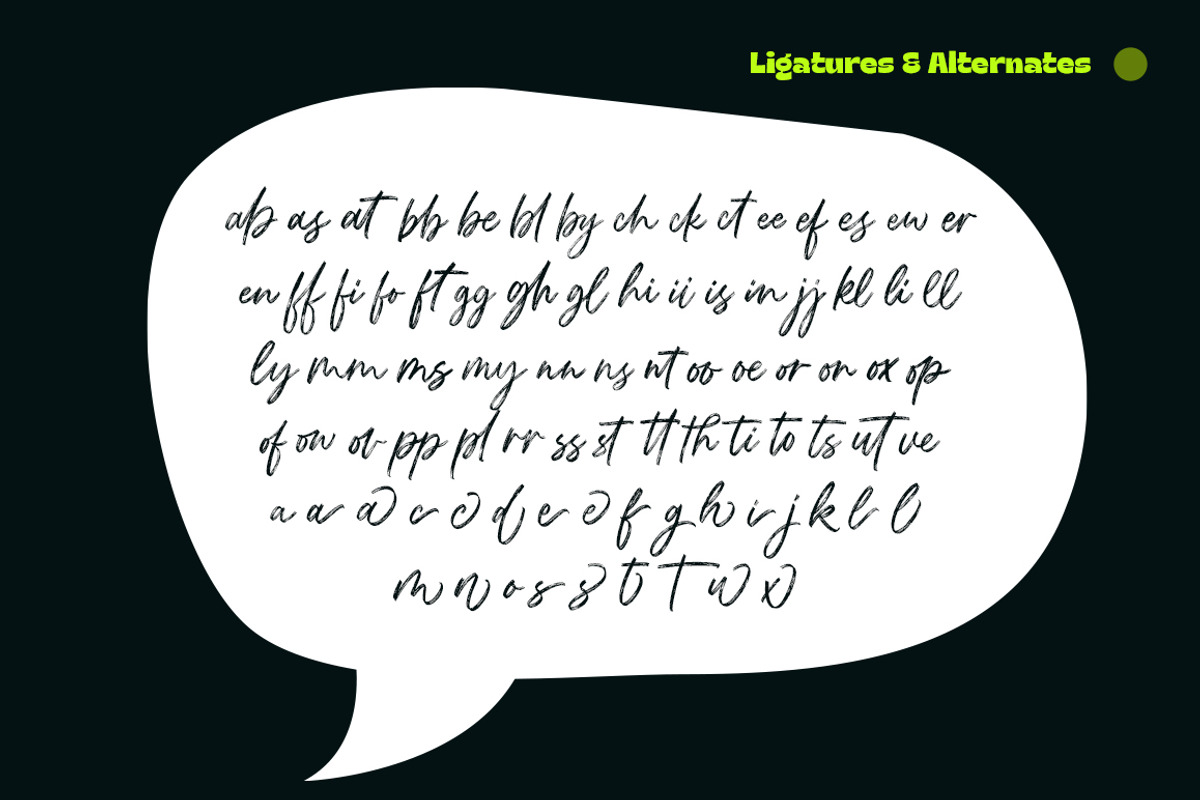 Ligatures & Alternates
ab as at bb be bl by ch ck ct ee ef es ew er
en ff fi fo ft gg gh gl hi ii is in jj kl li ll
ly mm ms my nn ns nt oo oe or on ox op
of ow ov pp pl rr ss st tt th ti to ts ut ve
a a a c c d e e f g h i j k l l
m n o s s t t w x